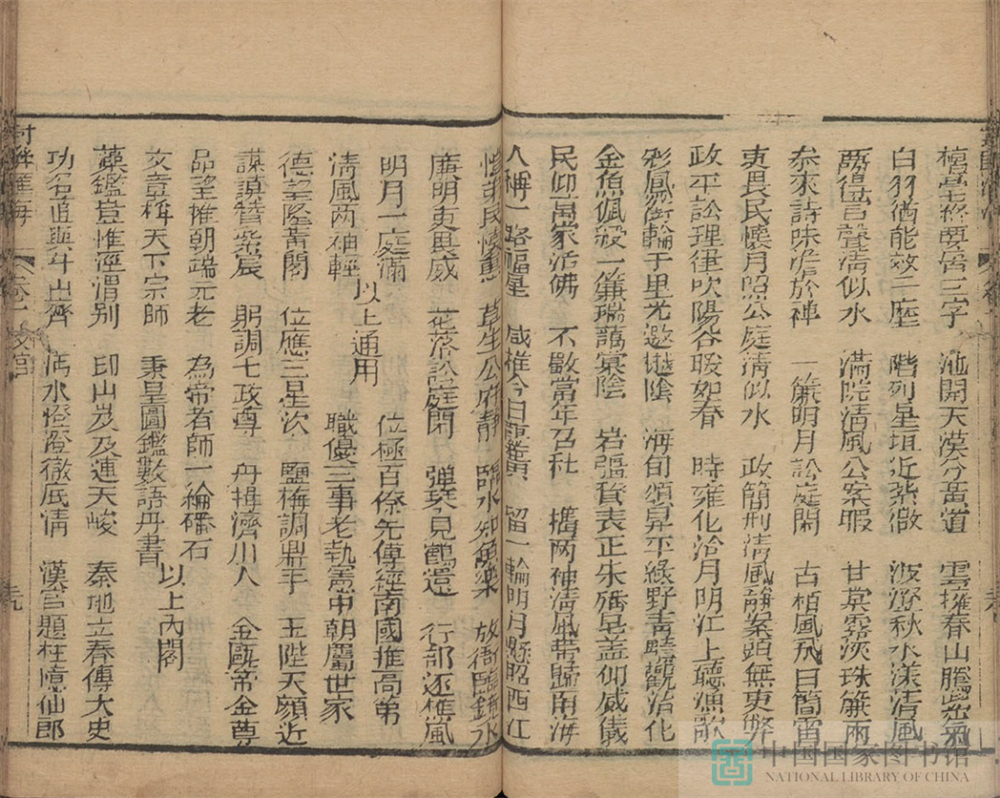 三字 池開天漢分黃道 雲擁春山
白羽猶能效二 階列星垣近紫微 波澄秋水漾清風
兩得 言聲清似水 滿院清風公案暇 甘棠露淡珠簾雨
泰來詩味澹於禪 一簾明月訟庭閑 古栢風飛白簡霜
吏畏民懷月照公庭清似水 政簡刑清風 案頭無吏弊
政平訟理律吹陽谷暖如春 時雍化洽月明江上聽漁歌
彩鳳 輪千里光 樾蔭 海甸頌昇平綠野青 觀治化
金魚佩 一簾瑞藹棠陰 岩 正朱 皂盖仰威儀
民仰萬家活佛 不 當年召杜 携兩袖清風帶歸南海
人稱一路福星 咸推今日龔黃 留一輪明月懸照西江
民懷惠 草生公府靜 臨水知魚樂 放衙臨鏡水
廉明吏畏威 花落訟庭閑 彈琴見鶴還 行部還樵嵐
明月一庭滿 位極百僚先傳經南國推高第
清風两袖輕 以上通用 職優三事老執盖中朝屬世家
德望隆黃閣 位應三星次 鹽梅調鼎手 玉陛天顏近
謨 贊紫宸 躬調七政尊 丹楫濟川人 金甌帝命尊
品望推朝端元老 為帝者師一綸磻石
文章稱天下宗師 秉皇圖鑑數語丹書 以上內閣
藻鑑豈惟涇渭别 印山岌及連天峻 秦地立春傳大史
功名直與斗山齊 沔水 澄徹底清 漢宮題柱憶仙郎
中国国家图书馆
NATIONAL LIBRARY OF CHINA